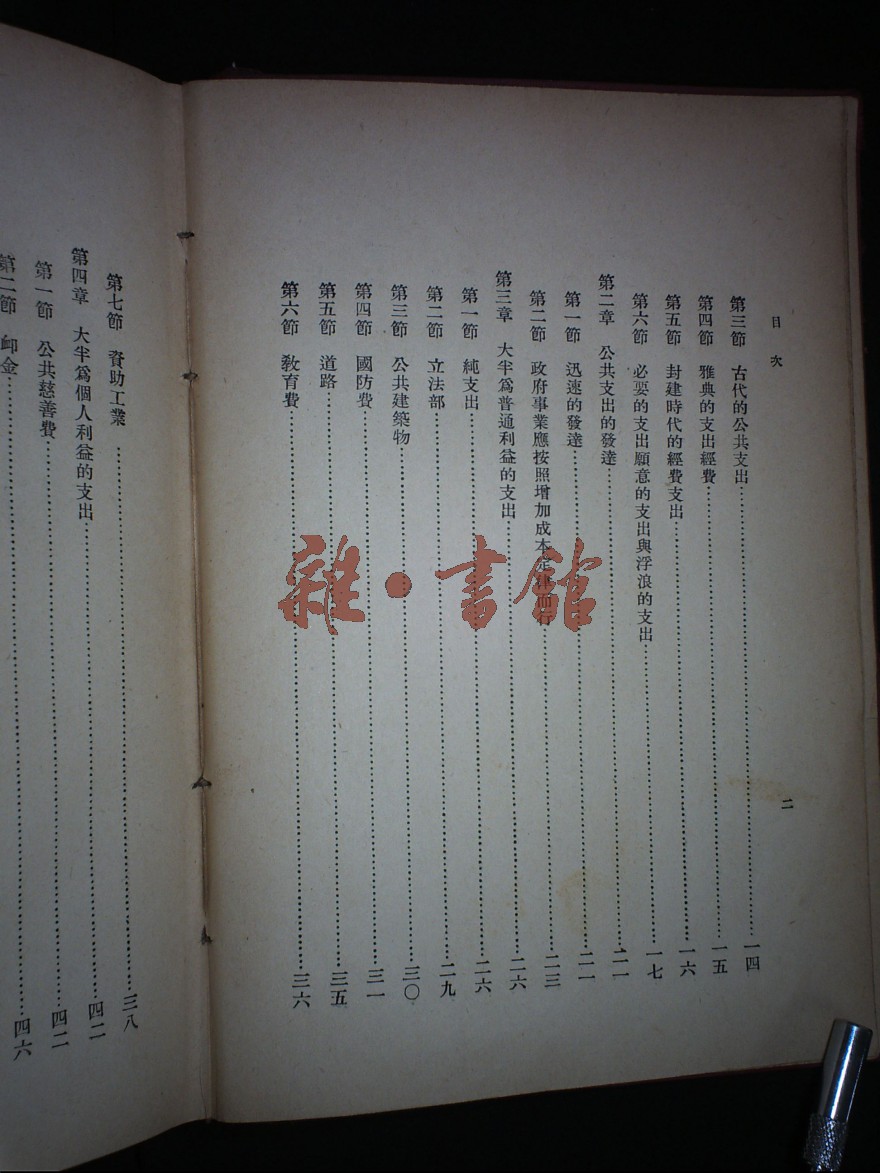 目次
二
第三節 古代的公共支出……一四
第四節 雅典的支出經費……一五
第五節 封建時代的經費支出……一六
第六節 必要的支出願意的支出與浮浪的支出……一七
第二章 公共支出的發達……二一
第一節 迅速的發達……二一
第二節 政府事業應按照增加成本定律而行……二三
第三章 大半爲普通利益的支出……二六
第一節 純支出……二六
第二節 立法部……二九
第三節 公共建築物……三〇
第四節 國防費……三一
第五節 道路……三五
第六節 敎育費……三六
第七節 資助工業……三八
第四章 大半爲個人利益的支出……四二
第一節 公共慈善費……四二
第二節 卹金……四六
雜·書館